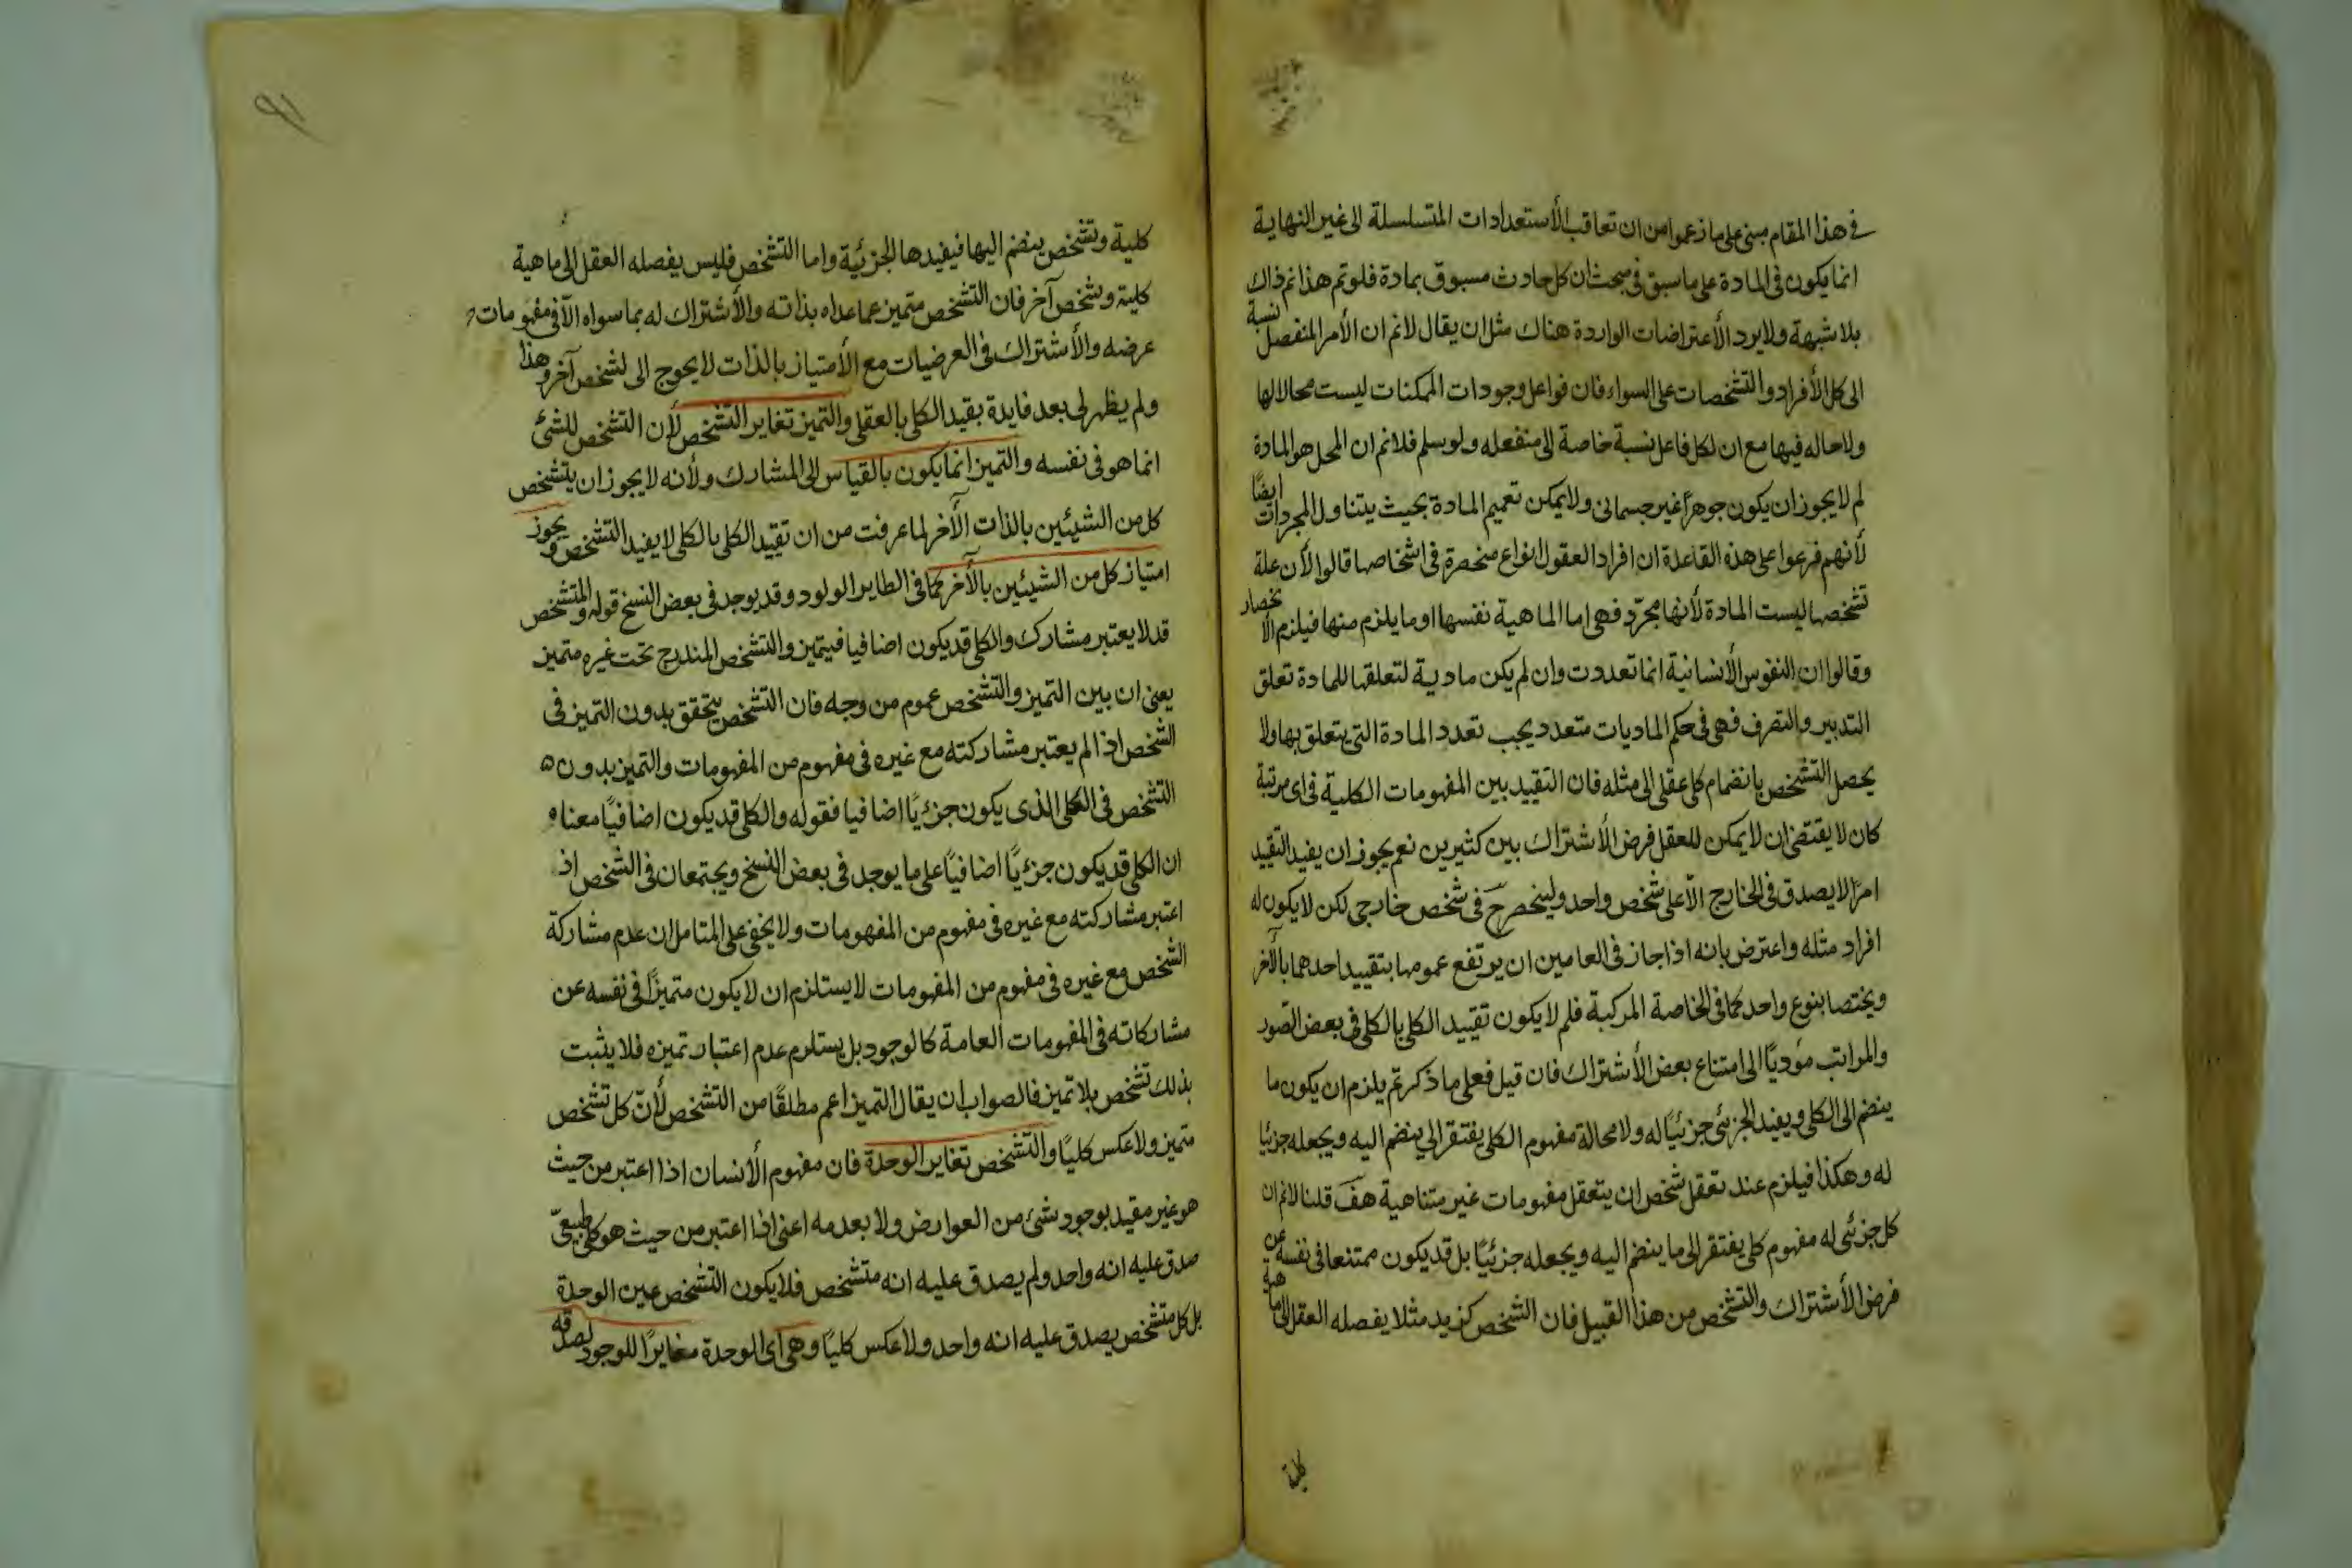 في هذا المقام مبنى على ما زعموا من ان تعاقب الأستعدادات المتسلسلة الى غير النهاية
انما يكون في المادة على ما سبق في مبحث ان كل حادث مسبوق بمادة فلو تم هذا تم ذاك
بلا شبهة ولا يرد الأعتراضات الواردة هناك مثل ان يقال لانم ان الأمر المنفصل نسبة
الى كل الأفراد والتشخصات على السواء فان فواعل وجودات الممكنات ليست محالا لها
ولا حاله فيها مع ان لكل فاعل نسبة خاصة الى منفعله ولو سلم فلانم ان المحل هو المادة
لم لا يجوز ان يكون جوهرًا غير جسمانى ولا يمكن تعميم المادة بحيث يتناول المجردات ايضًا
لأنهم فرعوا على هذه القاعدة ان افراد العقول انواع منحصرة في اشخاصها قالوا لأن علة
تشخصها ليست المادة لأنها مجرّد فهى اما الماهية نفسها او ما يلزم منها فيلزم الانحصار
وقالوا ان النفوس الأنسانية انما تعددت وان لم يكن مادية لتعلقها للمادة تعلق
التدبير والتصرف فهى في حكم الماديات متعدد يجب تعدد المادة التى يتعلق بها ولا
يحصل التشخص بانضمام كلى عقلى الى مثله فان التقييد بين المفهومات الكلية في اى مرتبة
كان لا يقتضى ان لا يمكن للعقل فرض الأشتراك بين كثيرين نعم يجوز ان يفيد التقييد
امرًا لا يصدق في الخارج الّا على شخص واحد ولينحصر ح في شخص خارجى لكن لا يكون له
افراد مثله واعترض بانه اذا جاز في العامين ان يرتفع عمومها بتقييد احدهما بالآخر
ويختصا بنوع واحد كما في الخاصة المركبة فلم لا يكون تقييد الكلى بالكلى في بعض الصور
والمراتب مؤديًا الى امتناع بعض الأشتراك فان قيل فعلى ما ذكرتم يلزم ان يكون ما
ينضم الى الكلى ويفيد الجزئى جزئيًا له ولا محالة مفهوم الكلى يفتقر الى ينضم اليه ويجعله جزئيا
له وهكذا فيلزم عند تعقل شخص ان يتعقل مفهومات غير متناهية هف قلنا لانم ان
كل جزئى له مفهوم كلى يفتقر الى ما ينضم اليه ويجعله جزئيًا بل قد يكون ممتنعا في نفسه عن
فرض الأشتراك والتشخص من هذا القبيل فان الشخص كزيد مثلا يفصله العقل الى ماهية
كلية
٩١
كلية وتشخص ينضم اليها فيفيدها الجزئية واما التشخص فليس يفصله العقل الى ماهية
كلية وتشخص آخر فان التشخص متميز عما عداه بذاته والأشتراك له بما سواه الّا في مفهومات
عرضه والأشتراك في العرضيات مع الأمتياز بالذات لا يحوج الى تشخص آخر وهذا
ولم يظهر لى بعد فايدة بقيد الكلى بالعقلى والتميز تغاير التشخص لأن التشخص للشئ
انما هو في نفسه والتميز انما يكون بالقياس الى المشارك ولأنه لا يجوز ان يتشخص
كل من الشيئين بالذات الآخر لما عرفت من ان تقيد الكلى بالكلى لا يفيد التشخص ويجوز
امتياز كل من الشيئين بالآخر كما في الطاير الولود وقد يوجد في بعض النسخ قوله والمتشخص
قد لا يعتبر مشارك والكلى قد يكون اضافيا فيتميز والتشخص المندرج تحت غيره متميز
يعنى ان بين التميز والتشخص عموم من وجه فان التشخص يتحقق بدون التميز في
الشخص اذا لم يعتبر مشاركته مع غيره في مفهوم من المفهومات والتميز بدون
التشخص في الكلى الذى يكون جزئيًا اضافيا فقوله والكلى قد يكون اضافيًا معناه
ان الكلى قد يكون جزئيًا اضافيًا على ما يوجد في بعض النسخ ويجتمعان في الشخص اذ
اعتبر مشاركته مع غيره في مفهوم من المفهومات ولا يخفى على المتامل ان عدم مشاركة
الشخص مع غيره في مفهوم من المفهومات لا يستلزم ان لا يكون متميزًا في نفسه عن
مشاركاته في المفهومات العامة كالوجود بل يستلزم عدم اعتبار تميزه فلا يثبت
بذلك تشخص بلا تميز فالصواب ان يقال التميز اعم مطلقًا من التشخص لأنّ كل تشخص
متميز ولا عكس كليًا والتشخص تغاير الوحدة فان مفهوم الأنسان اذا اعتبر من حيث
هو غير مقيد بوجود شئ من العوارض ولا بعدمه اعنى اذا اعتبر من حيث هو كلى طبيعىّ
صدق عليه انه واحد ولم يصدق عليه انه متشخص فلا يكون التشخص عين الوحدة
بل كل متشخص يصدق عليه انه واحد ولا عكس كليًا وهى اى الوحدة مغايرًا للوجود لصدقه